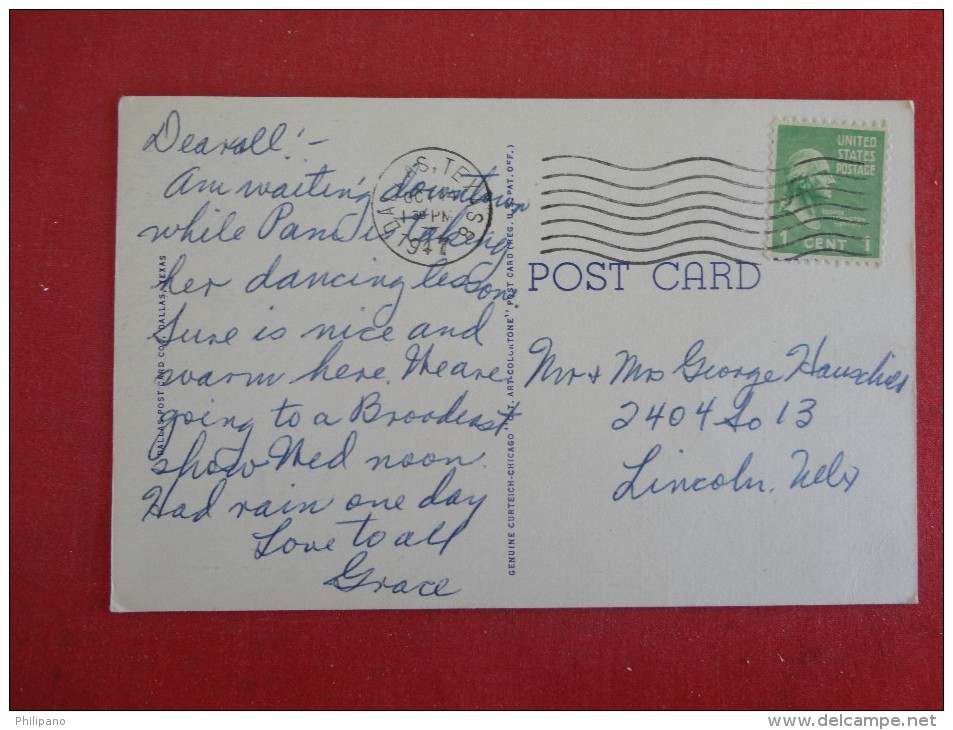 Dear all!-
Am waiting downtown
while Pam is taking
her dancing lesson.
Sure is nice and
warm here. We are
going to a Broadcast
show Wed noon.
Had rain one day
Love to all
Grace
DALLAS, TEXAS
OCT
1 30 PM
1947
8
UNITED
STATES
POSTAGE
1 CENT 1
POST CARD
Mr & Mrs George
2404 So 13
Lincoln, Nebr
DALLAS POST CARD CO., DALLAS, TEXAS
GENUINE CURTEICH-CHICAGO "C.T. ART-COLORTONE" POST CARD (REG. U.S. PAT. OFF.)
Philipano
www.delcampe.net